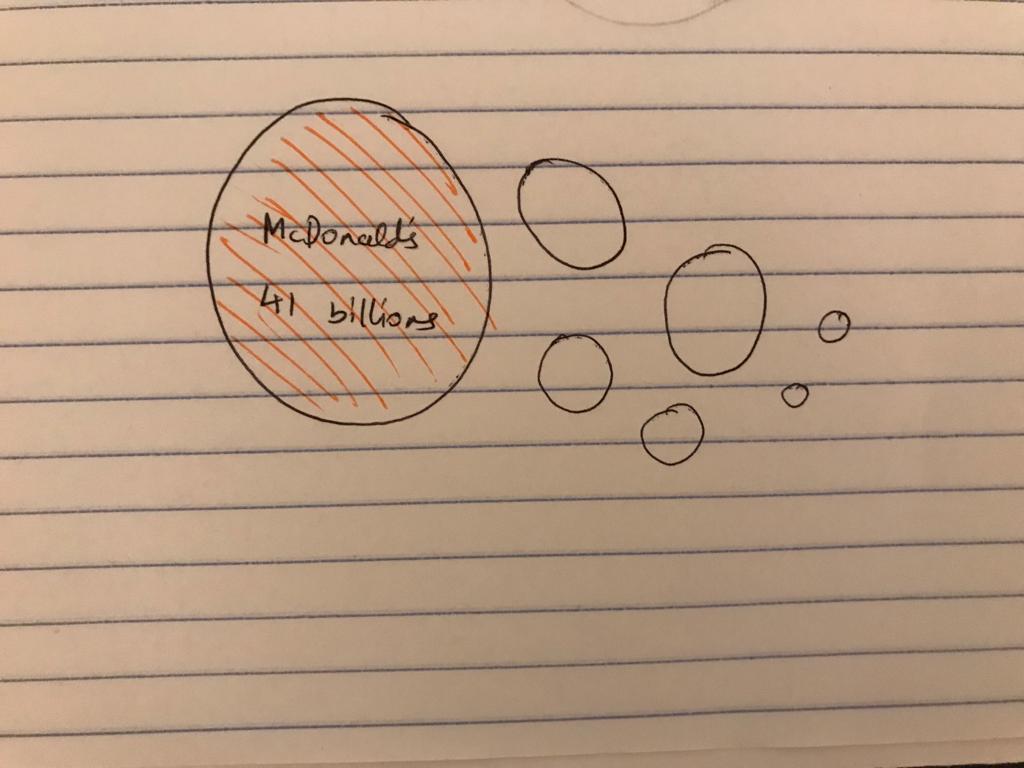 McDonald's
41 billions